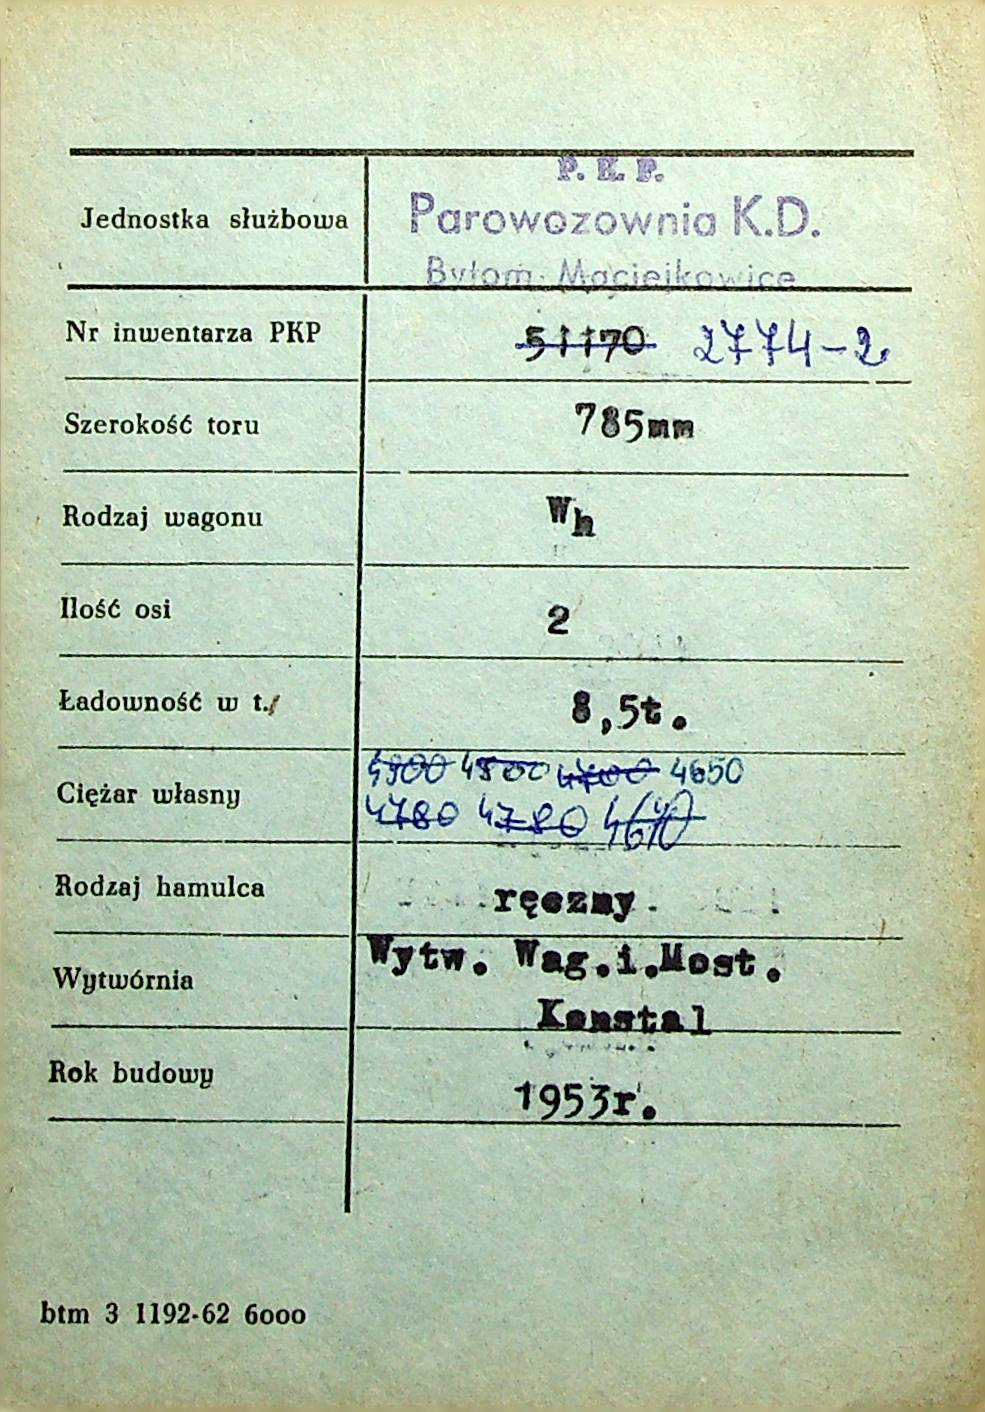 P. K. P.
Jednostka służbowa Parowozownia K.D.
Bytom Maciejkowice
Nr inwentarza PKP 51170 2774-2
Szerokość toru 785mm
Rodzaj wagonu Wh
Ilość osi 2
Ładowność w t./ 8,5t.
4900 4800 4700 4650
Ciężar własny 4780 4780 4640
Rodzaj hamulca ręczny.
Wytwórnia Wytw. Wag.i.Most.
Konstal
Rok budowy 1953r.
btm 3 1192-62 6000